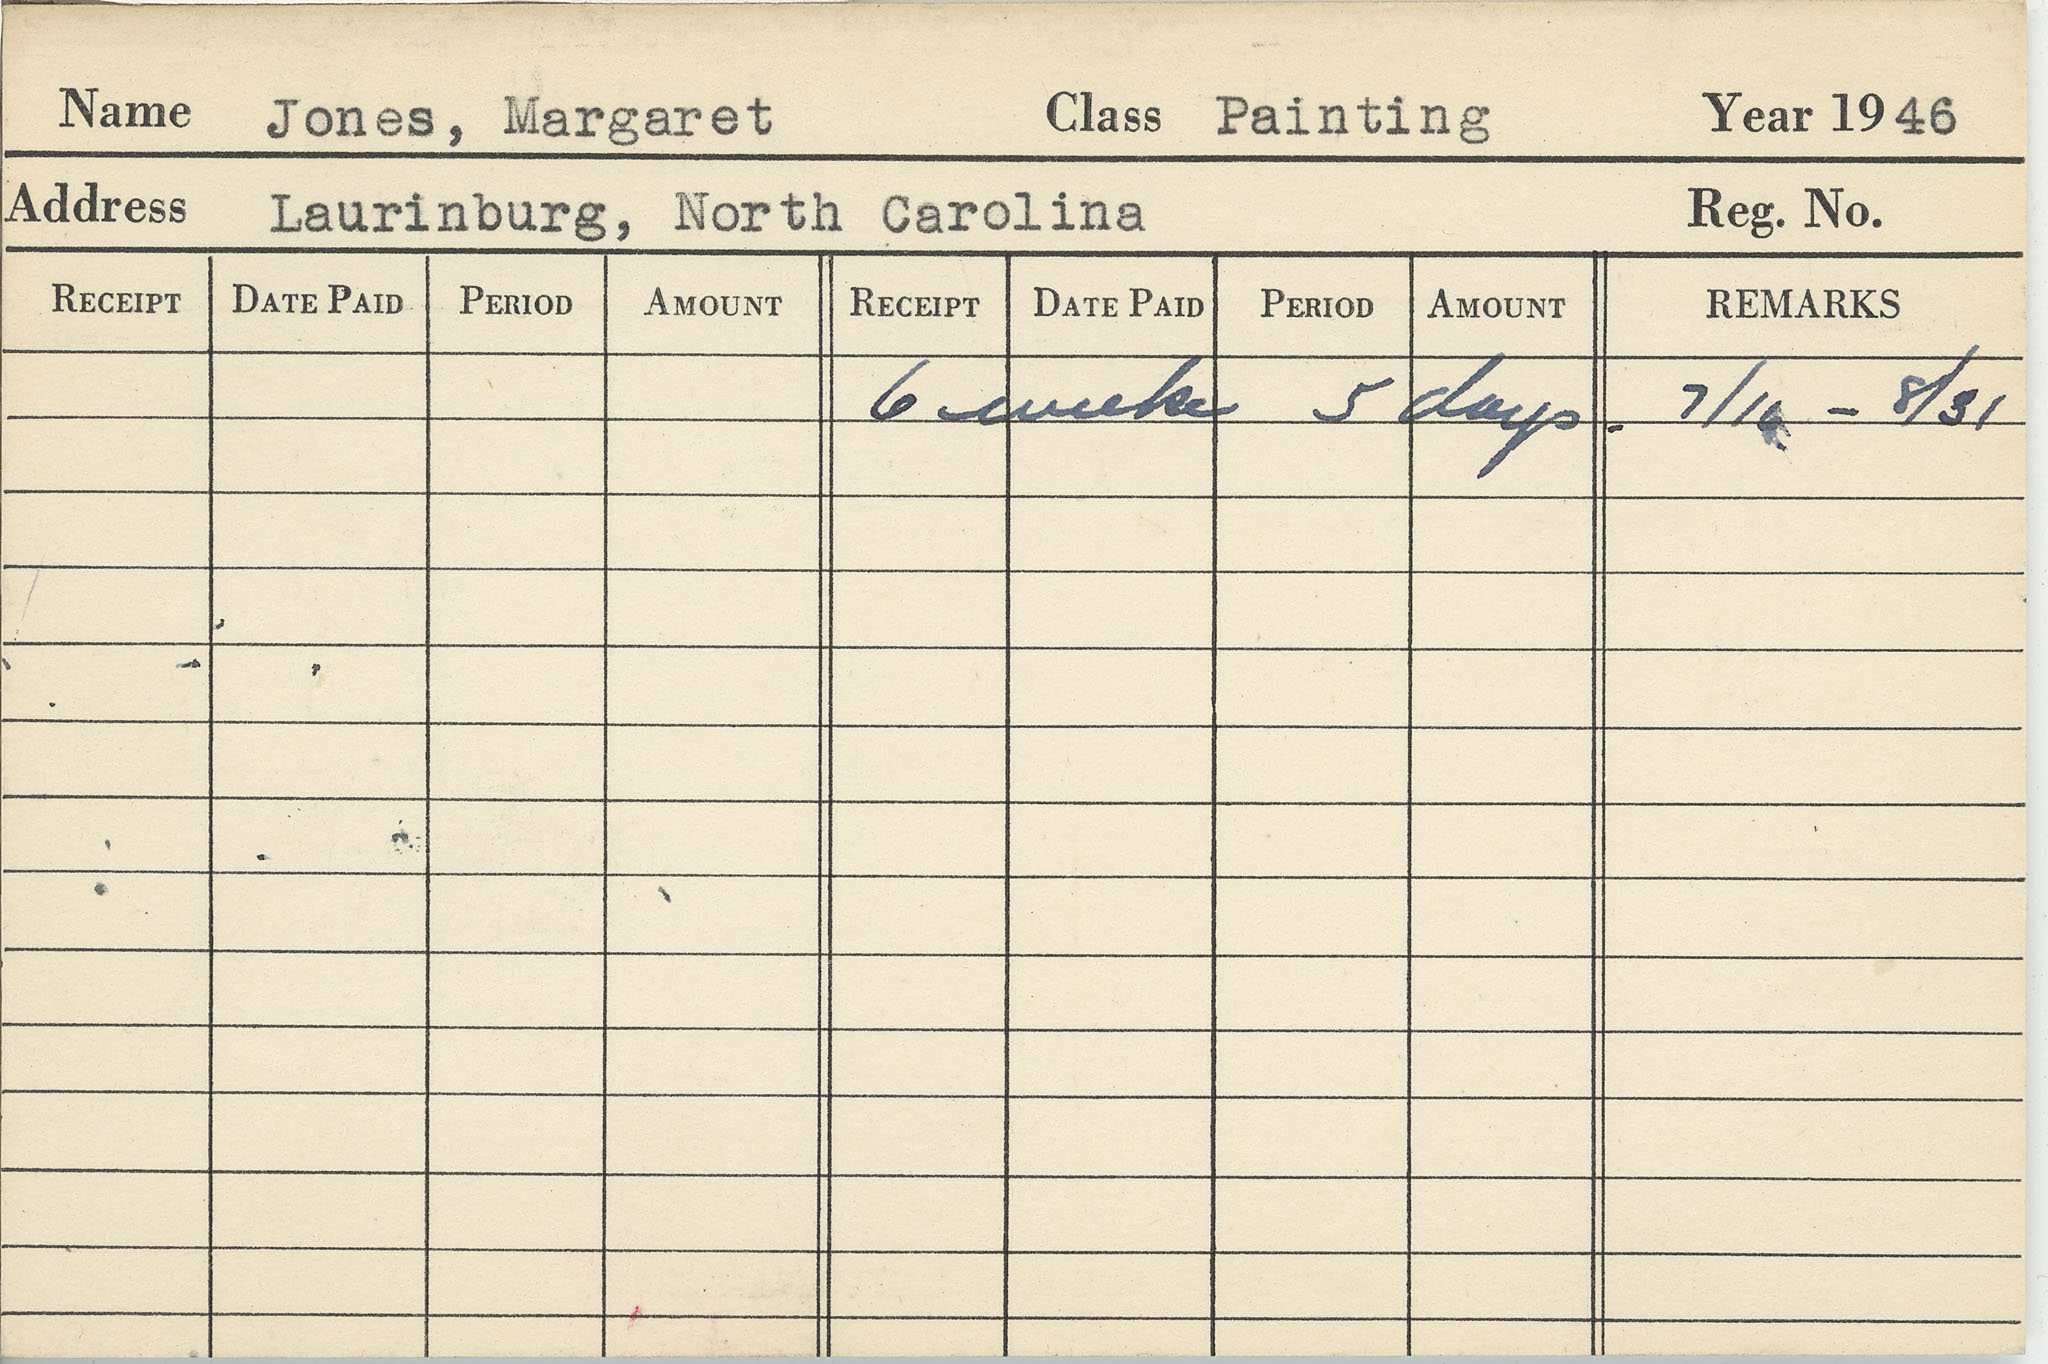 Name Jones, Margaret Class Painting Year 1946
Address Laurinburg, North Carolina Reg. No.
RECEIPT DATE PAID PERIOD AMOUNT RECEIPT DATE PAID PERIOD AMOUNT REMARKS
6 weeks 5 days. 7/16 - 8/31